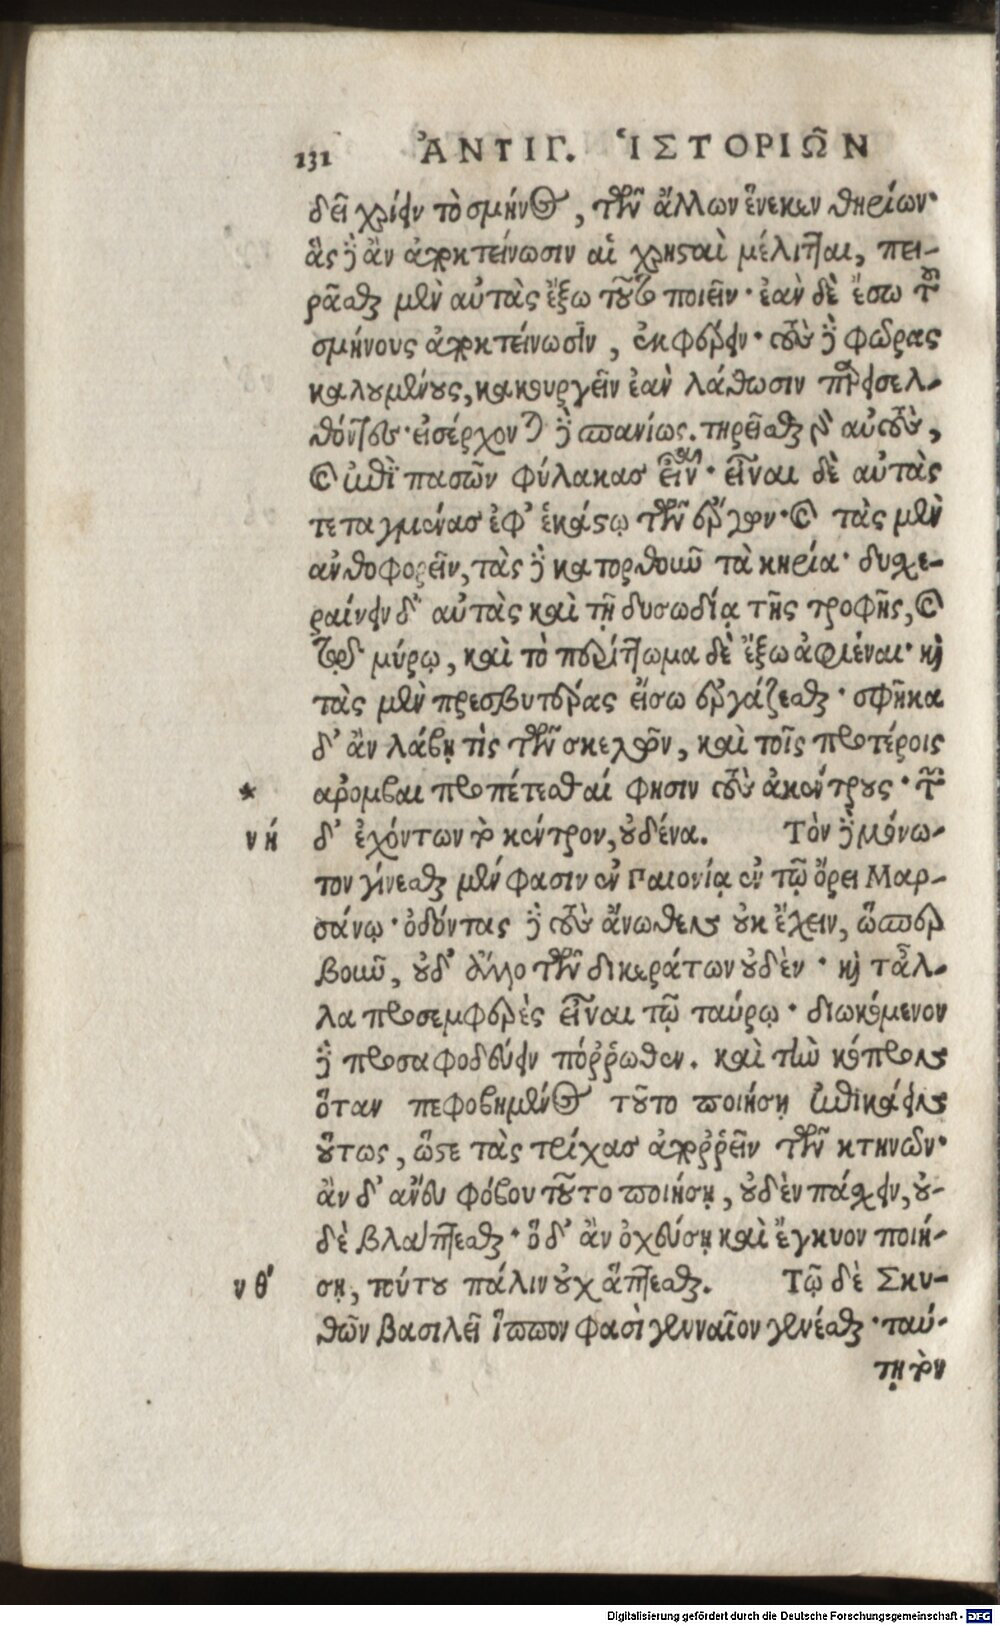 131 ἈΝΤΙΓ. ἹΣΤΟΡΙΩ͂Ν
δεῖ χρίειν τὸ σμῆνος, τῶν ἄλλων ἕνεκεν θηρίων·
ἃς δ̀ ἂν ἀποκτείνωσιν αἱ χρηςαὶ μέλιτται, πει-
ρᾶσθαι μὲν αὐτὰς ἔξω τοῦτο ποιεῖν· ἐὰν δὲ ἔσω τοῦ
σμήνους ἀποκτείνωσιν, ἐκφέρειν· τοὺς δὲ φῶρας
καλουμένους, κακουργεῖν ἐὰν λάθωσιν παρεισελ-
θόντες· εἰσέρχονται δὲ σπανίως. τηρεῖσθαι γὰρ αὐτοὺς,
καὶ ἐπὶ πασῶν φύλακας εἶναι· εἶναι δὲ αὐτὰς
τεταγμένας ἐφ' ἑκάςῳ τῶν ἔργων· καὶ τὰς μὲν
ἀνθοφορεῖν, τὰς δὲ κατορθοῦν τὰ κηρία· δυσχε-
ραίνειν δ' αὐτὰς καὶ τῇ δυσωδίᾳ τῆς τροφῆς, καὶ
τῷ μύρῳ, καὶ τὸ περίττωμα δὲ ἔξω ἀφιέναι· καὶ
τὰς μὲν πρεσβυτέρας εἴσω ἐργάζεσθαι· σφῆκα
δ' ἂν λάβῃ τὶς τῶν σκελῶν, καὶ τοῖς προτέροις
* προσπέτεσθαί φησιν τοὺς ἀκέντρους· τῶν
νή δ' ἐχόντων τὸ κέντρον, οὐδένα. Τὸν δὲ μόνω-
τον γίνεσθαι μέν φασιν ἐν Παιονίᾳ ἐν τῷ ὄρει Μαρ-
σάνῳ· ὀδόντας δὲ τοὺς ἄνωθεν οὐκ ἔχειν, ὥσπερ
βοῦν, οὐδ' ἄλλο τῶν δικεράτων οὐδὲν· καὶ τἆλ-
λα προσεμφερὲς εἶναι τῷ ταύρῳ· διωκόμενον
δὲ προσαφοδεύειν πόῤῥωθεν. καὶ τὴν κόπρον
ὅταν πεφοβημένος τοῦτο ποιήσῃ ἐπικάειν
οὕτως, ὥςε τὰς τρίχας ἀποῤῥεῖν τῶν κτηνῶν·
ἂν δ' ἄνευ φόβου τοῦτο ποιήσῃ, οὐδὲν πάσχειν, οὐ-
δὲ βλάπτεσθαι· ὃ δ' ἂν ὀχεύσῃ καὶ ἔγκυον ποιή-
νθ' σῃ, τούτου πάλιν οὐχ ἅπτεσθαι. Τῷ δὲ Σκυ-
θῶν βασιλεῖ ἵππον φασὶ γενναῖον γενέσθαι· ταύ-
τῃ τὸν
Digitalisierung gefördert durch die Deutsche Forschungsgemeinschaft - DFG